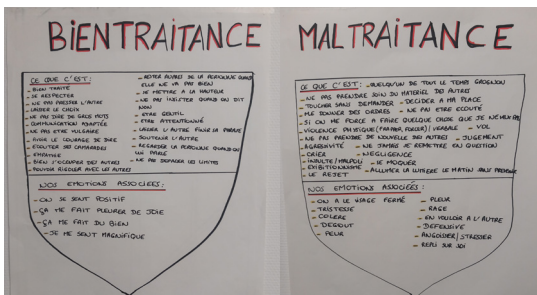 BIENTRAITANCE
CE QUE C'EST:
- BIEN TRAITÉ
- SE RESPECTER
- NE PAS PRESSER L'AUTRE
- LAISSER LE CHOIX
- NE PAS DIRE DE GROS MOTS
- COMMUNICATION ADAPTÉE
- NE PAS ETRE VULGAIRE
- AVOIR LE COURAGE DE DIRE
- ECOUTER SES CAMARADES
- EMPATHIE
- BIEN S'OCCUPER DES AUTRES
- POUVOIR RIGOLER AVEC LES AUTRES
- RESTER AUPRES DE LA PERSONNE QUAND
ELLE NE VA PAS BIEN
- SE METTRE A LA HAUTEUR
- NE PAS INSISTER QUAND ON DIT
NON
- ETRE GENTIL
- ETRE ATTENTIONNÉ
- LAISSER L'AUTRE FINIR SA PHRASE
- SOUTENIR L'AUTRE
- REGARDER LA PERSONNE QUAND ON
LUI PARLE
- NE PAS DEPASSER LES LIMITES
NOS EMOTIONS ASSOCIÉES:
- ON SE SENT POSITIF
- ÇA ME FAIT PLEURER DE JOIE
- ÇA ME FAIT DU BIEN
- JE ME SENT MAGNIFIQUE
MALTRAITANCE
CE QUE C'EST: - QUELQU'UN DE TOUT LE TEMPS GROGNON
- NE PAS PRENDRE SOIN DU MATERIEL DES AUTRES
- TOUCHER SANS DEMANDER - DECIDER A MA PLACE
- ME DONNER DES ORDRES - NE PAS ETRE ECOUTÉ
- SI ON ME FORCE A FAIRE QUELQUE CHOSE QUE JE N'AIME PAS
- VIOLENCE PHYSIQUE (FRAPPER, FORCER) / VERBALE - VOL
- NE PAS PRENDRE DE NOUVELLE DES AUTRES - JUGEMENT
- AGRESSIVITÉ - NE JAMAIS SE REMETTRE EN QUESTION
- CRIER - NEGLIGENCE
- INSULTE/MALPOLI - SE MOQUER
- EXIBITIONNISME - ALLUMER LA LUMIERE LE MATIN SANS PREVENIR
- LE REJET
NOS EMOTIONS ASSOCIÉS:
- ON A LE VISAGE FERMÉ
- TRISTESSE
- COLERE
- DEGOUT
- PEUR
- PLEUR
- RAGE
- EN VOULOIR A L'AUTRE
- DEFENSIVE
- ANGOISSER/STRESSER
- REPLI SUR SOI